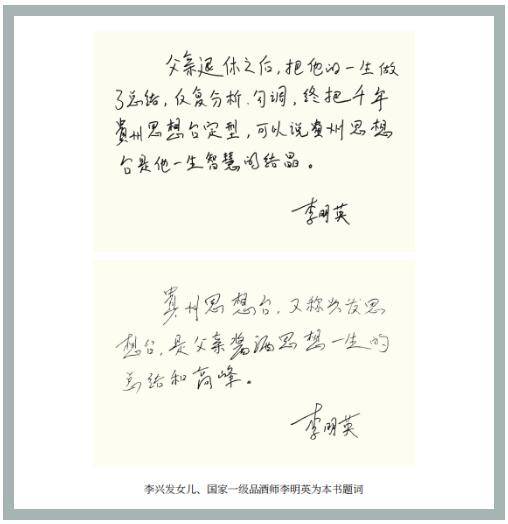 父亲退休之后，把他的一生做
了总结，反复分析、勾调，终把千年
貴州思想台定型，可以说贵州思想
台是他一生智慧的结晶。
李明英
貴州思想台，又称兴发思
想台，是父亲酱酒思想一生的
总结和高峰。
李明英
李兴发女儿、国家一级品酒师李明英为本书题词